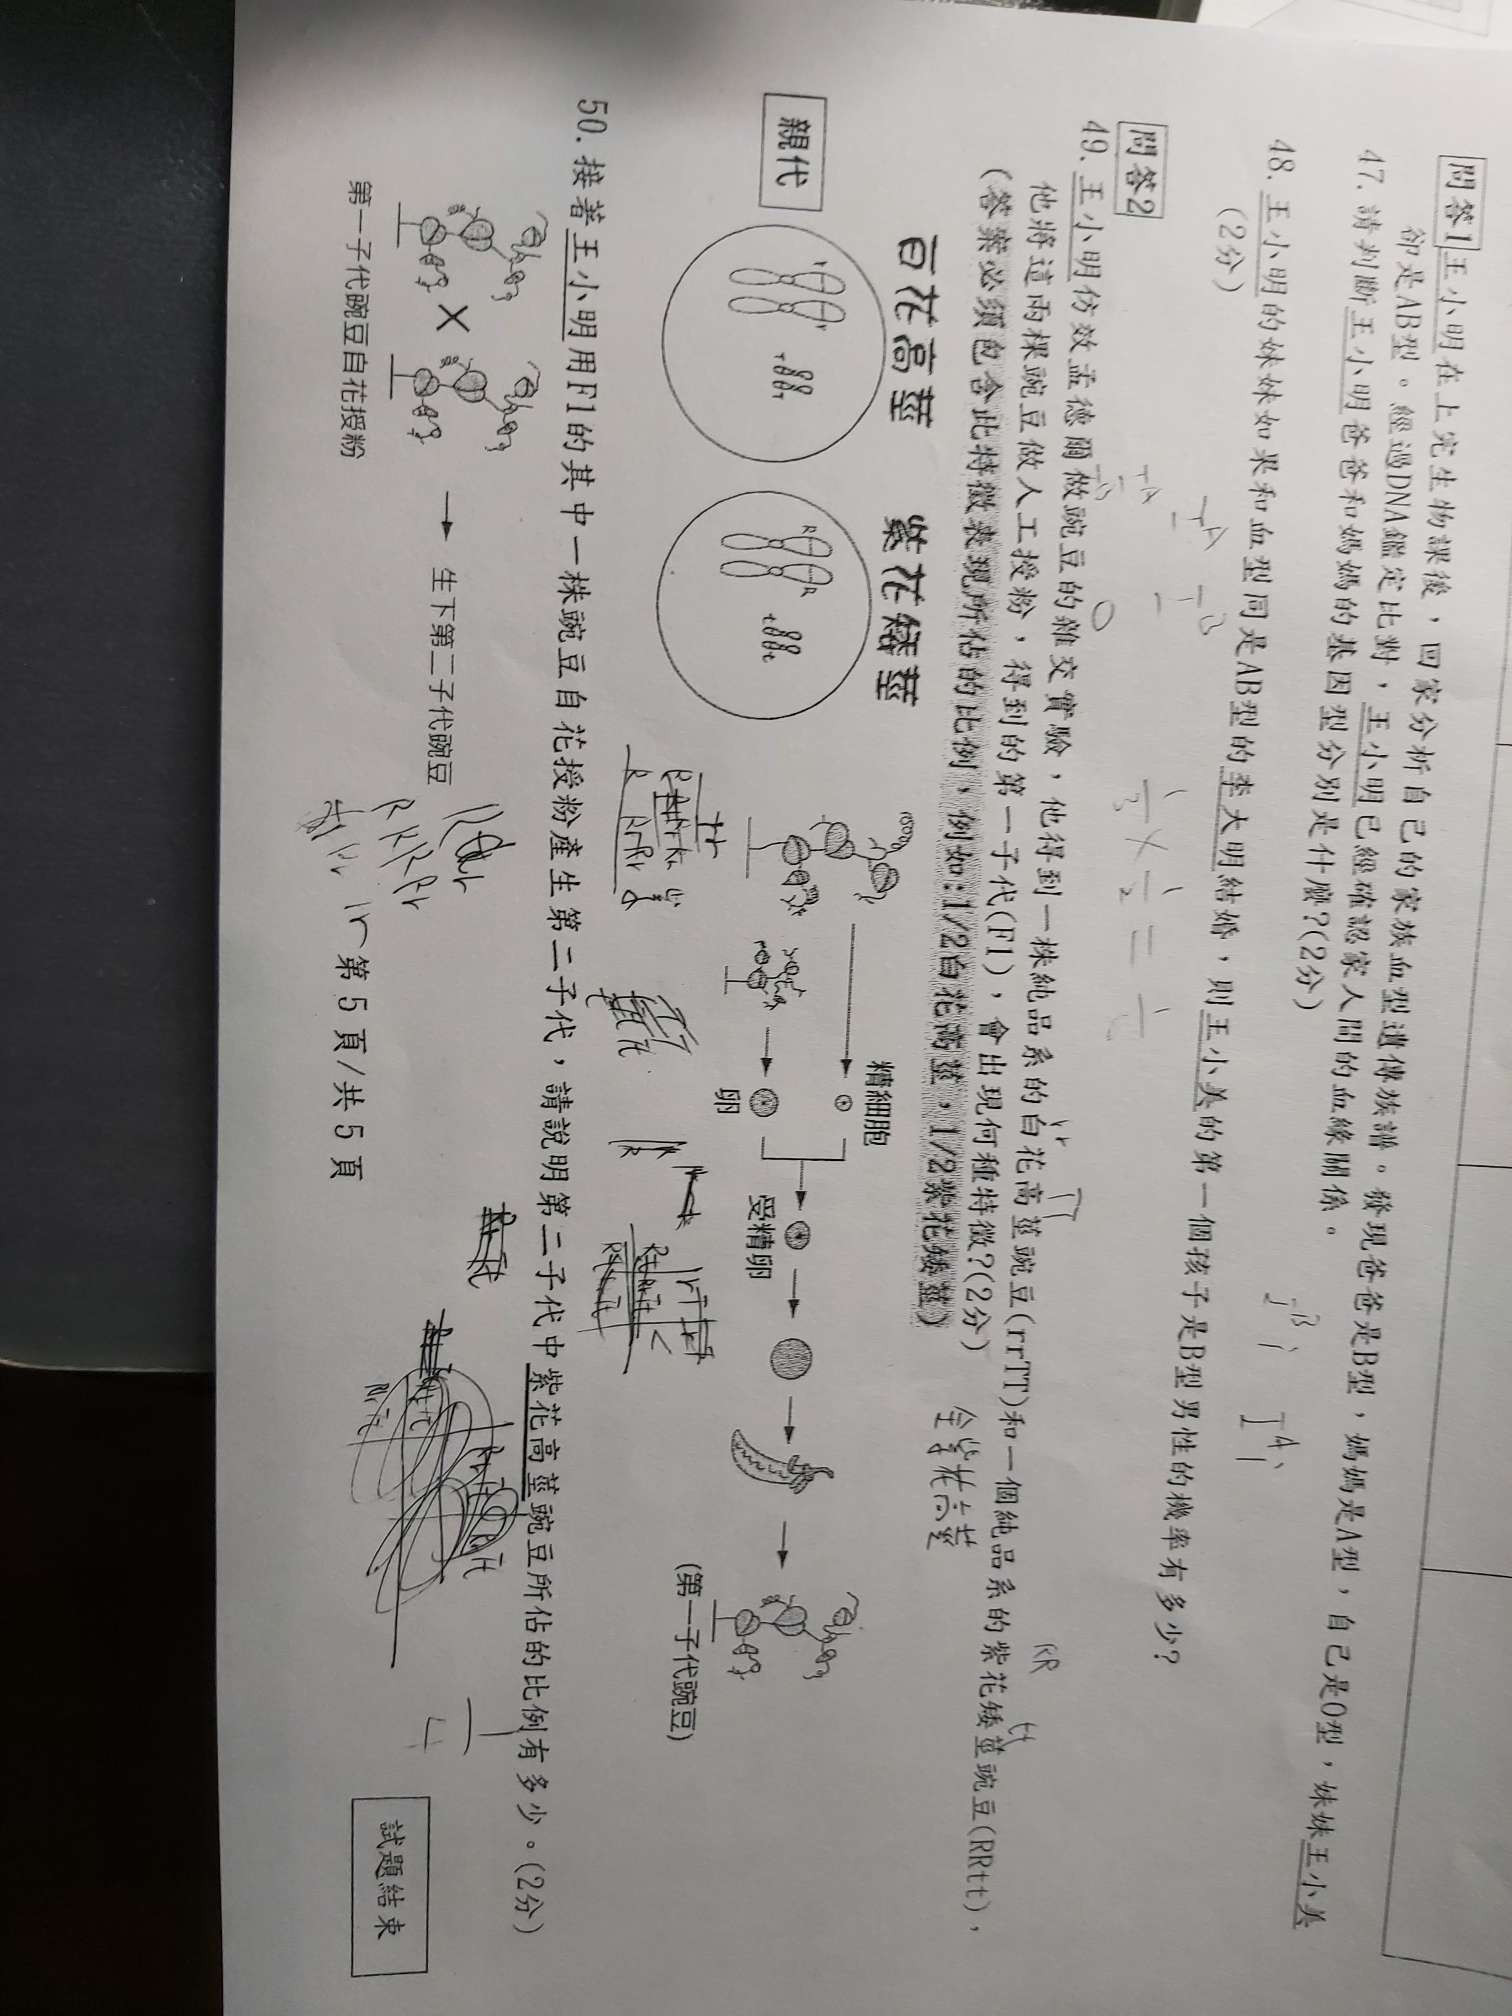 問答1 王小明在上完生物課後，回家分析自己的家族血型遺傳族譜。發現爸爸是B型，媽媽是A型，自己是O型，妹妹王小美
卻是AB型。經過DNA鑑定比對，王小明已經確認家人間的血緣關係。
47. 請判斷王小明爸爸和媽媽的基因型分別是什麼?(2分)
I^B i I^A i
48. 王小明的妹妹如果和血型同是AB型的李大明結婚，則王小美的第一個孩子是B型男性的機率有多少?
(2分)
問答2
49. 王小明仿效孟德爾做豌豆的雜交實驗，他得到一株純品系的白花高莖豌豆(rrTT)和一個純品系的紫花矮莖豌豆(RRtt)，
他將這兩棵豌豆做人工授粉，得到的第一子代(F1)，會出現何種特徵?(2分)
全紫花高莖
(答案必須包含此特徵表現所佔的比例，例如:1/2白花高莖，1/2紫花矮莖)
白花高莖 紫花矮莖
親代
r r
T T
R R
t t
精細胞
卵
受精卵
(第一子代豌豆)
50. 接著王小明用F1的其中一株豌豆自花授粉產生第二子代，請說明第二子代中紫花高莖豌豆所佔的比例有多少。(2分)
第一子代豌豆自花授粉
生下第二子代豌豆
試題結束
第 5 頁/共 5 頁